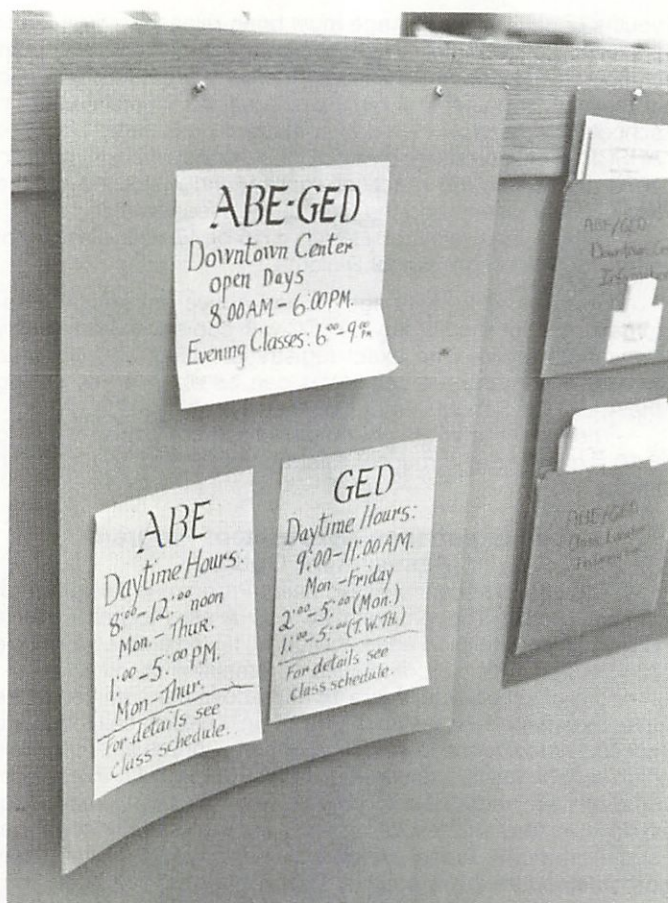 ABE-GED
Downtown Center
open Days
8:00AM-6:00PM.
Evening Classes: 6:00-9:00 PM
ABE
Daytime Hours:
8:00-12:00 noon
Mon.-Thur.
1:00-5:00 PM.
Mon-Thur.
For details see
class schedule.
GED
Daytime Hours:
9:00-11:00AM.
Mon-Friday
2:00-5:00 (Mon.)
1:00-5:00 (T.W.TH.)
For details see
class schedule.
ABE/GED
Downtown
ABE/GED
Class